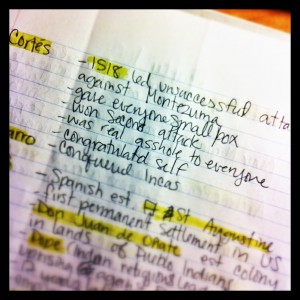 Cortés
- 1518 led unsuccessful atta
against Montezuma
- gave everyone small pox
- won second attack
- was real asshole to everyone
- congratulated self
arro
- Conquered Incas
- Spanish est. St Augustine
first permanent settlement in US
- Don Juan de Oñate est colony
in lands of Pueblo Indians
- Pope Indian religious lead
uprising against